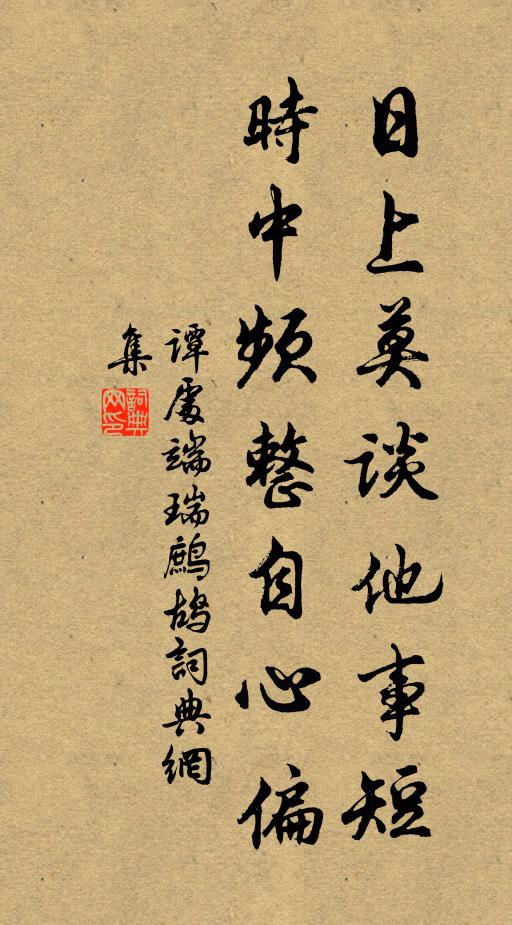 日上莫談他事短
時中頻整自心偏
譚處端瑞鷓鴣詞典網
集
詞典
网印